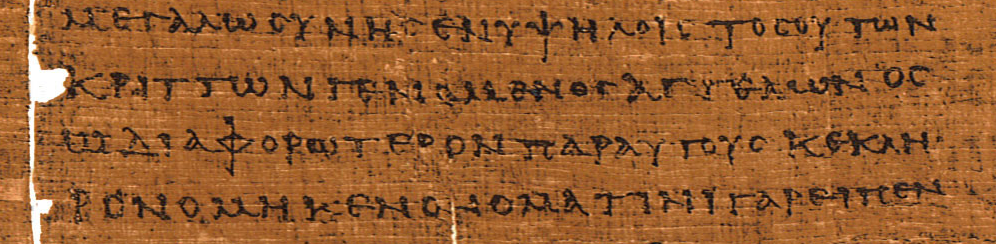 ΜΕΓΑΛΩϹΥΝΗϹ ΕΝ ΥΨΗΛΟΙϹ ΤΟϹΟΥΤΩΝ
ΚΡΙΤΤΩΝ ΓΕΝΟΜΕΝΟϹ ΑΓΓΕΛΩΝ ΟϹ
Ω ΔΙΑΦΟΡΩΤΕΡΟΝ ΠΑΡ ΑΥΤΟΥϹ ΚΕΚΛΗ
ΡΟΝΟΜΗΚΕΝ ΟΝΟΜΑ ΤΙΝΙ ΓΑΡ ΕΙΠΕΝ